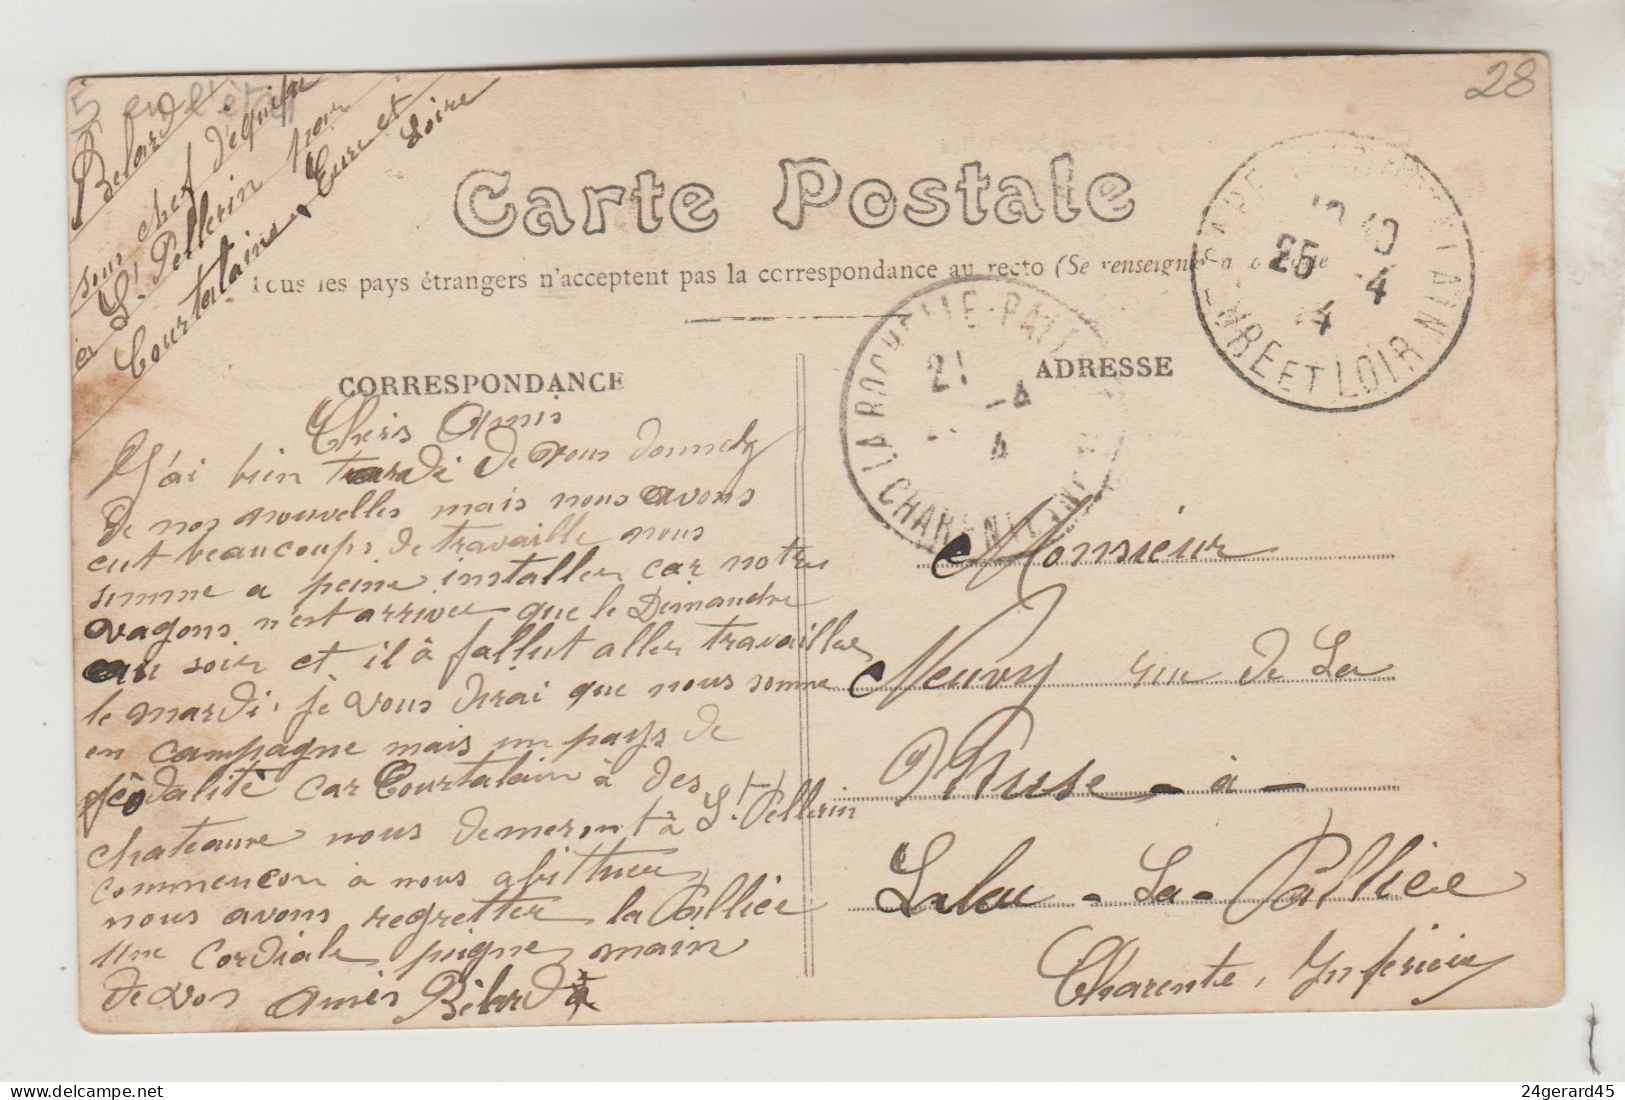 5
28
Belard
sous chef d'equipe
a St Pellerin par
Courtalain Eure et
Loire
Carte Postale
Tous les pays étrangers n'acceptent pas la correspondance au recto (Se renseigner à la Poste
25 -4
LA ROCHELLE-PALLICE
21 -4
4
CHARENTE INF
EURE ET LOIR
CORRESPONDANCE
ADRESSE
Chers Amis
J'ai bien tardé de vous donnely
de nos nouvelles mais nous avons
eut beaucoups de travaille nous
somme a peine installer car notre
vagons n'est arriver que le Dimanche
au soir et il à fallut aller travailler
le mardi. je vous dirai que nous somme
en campagne mais un pays de
féodalité car Courtalain à des
chateaure nous demeront à St Pellerin
commencon à nous abithuer
nous avons regretter la Pallice
une cordiale poigne main
de vos amies Bélard
Monsieur
Neuvy rue de La
Muse - à -
Laleu - La - Pallice
Charente, Inferieur
24gerard45